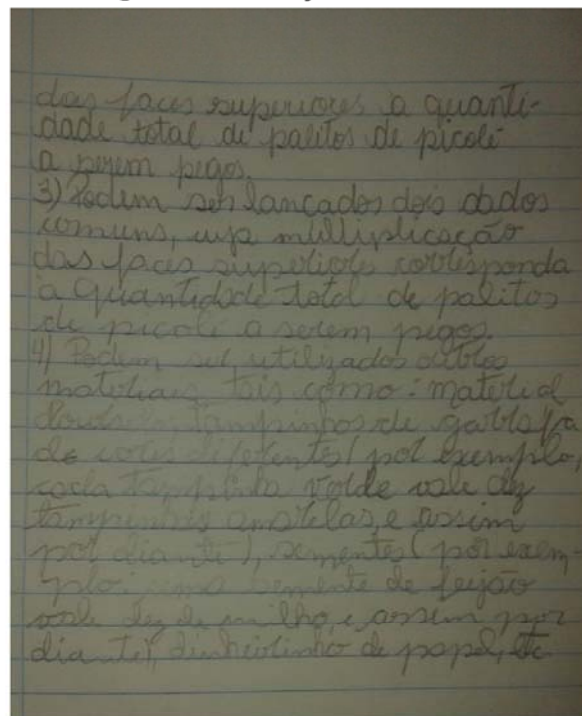 das faces superiores a quanti-
dade total de palitos de picolé
a serem pegos.
3) Podem ser lançados dois dados
comuns, cuja multiplicação
das faces superiores corresponda
a quantidade total de palitos
de picolé a serem pegos.
4) Podem ser utilizados outros
materiais tais como: material
dourado, tampinhas de garrafa
de cores diferentes (por exemplo,
cada tampinha verde vale dez
tampinhas amarelas, e assim
por diante), sementes (por exem-
plo: uma semente de feijão
vale dez de milho, e assim por
diante), dinheirinho de papel, etc